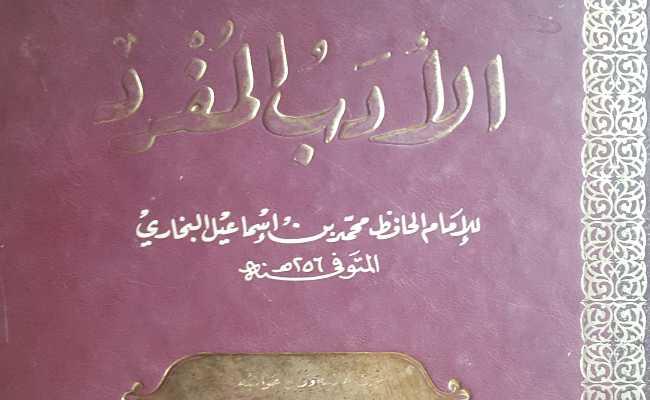 الأدب المفرد
للإمام الحافظ محمد بن إسماعيل البخاري
المتوفى سنة ٢٥٦ه